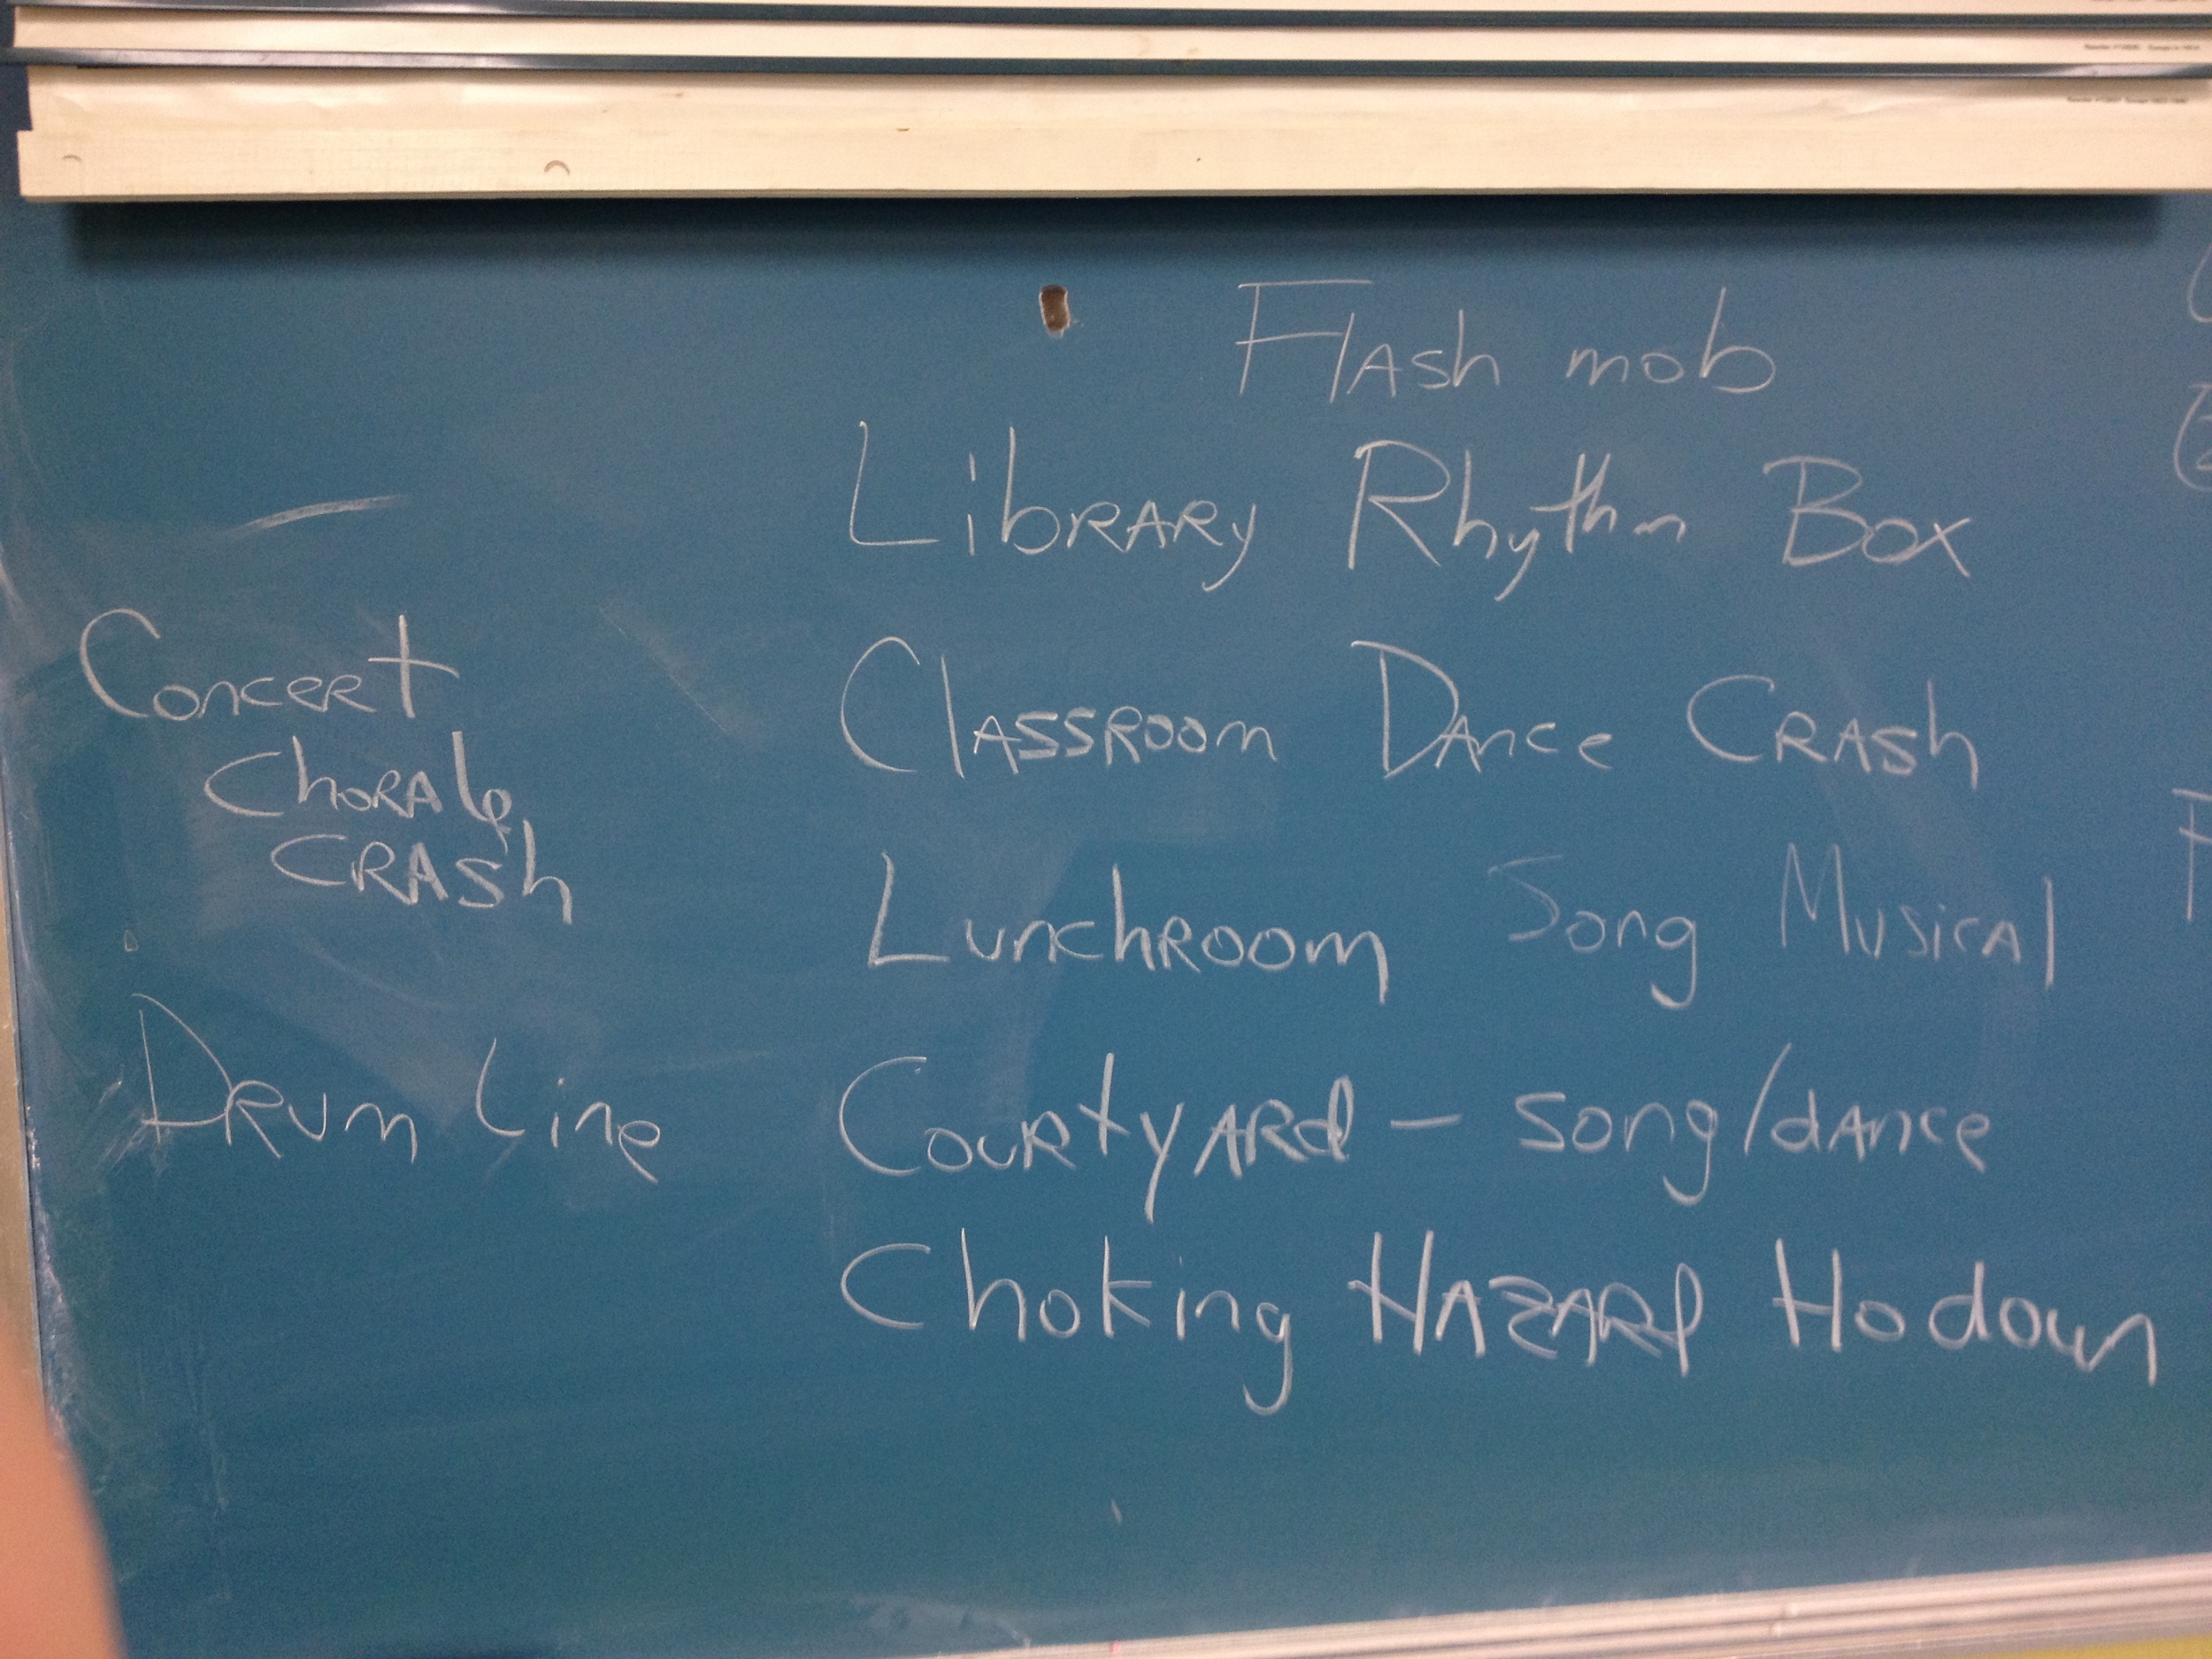 Flash mob
Library Rhythm Box
Classroom Dance Crash
Lunchroom Song Musical
Courtyard - song/dance
Choking Hazard Hodown
Concert
Chorale
Crash
Drum Line